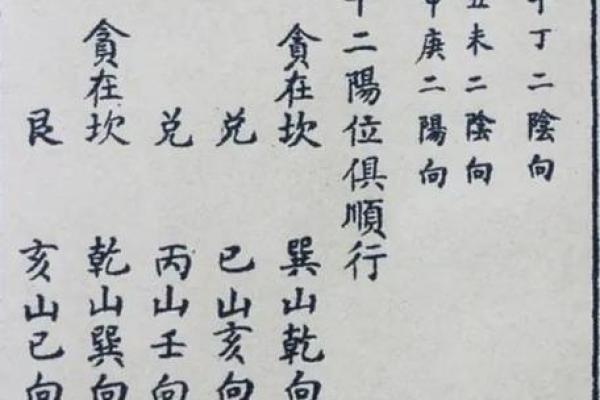 丁二陰向
未二陰向
庚二陽向
二陽位俱順行
貪在坎 巽山乾向
兌 巳山亥向
兌 丙山壬向
貪在坎 乾山巽向
艮 亥山巳向